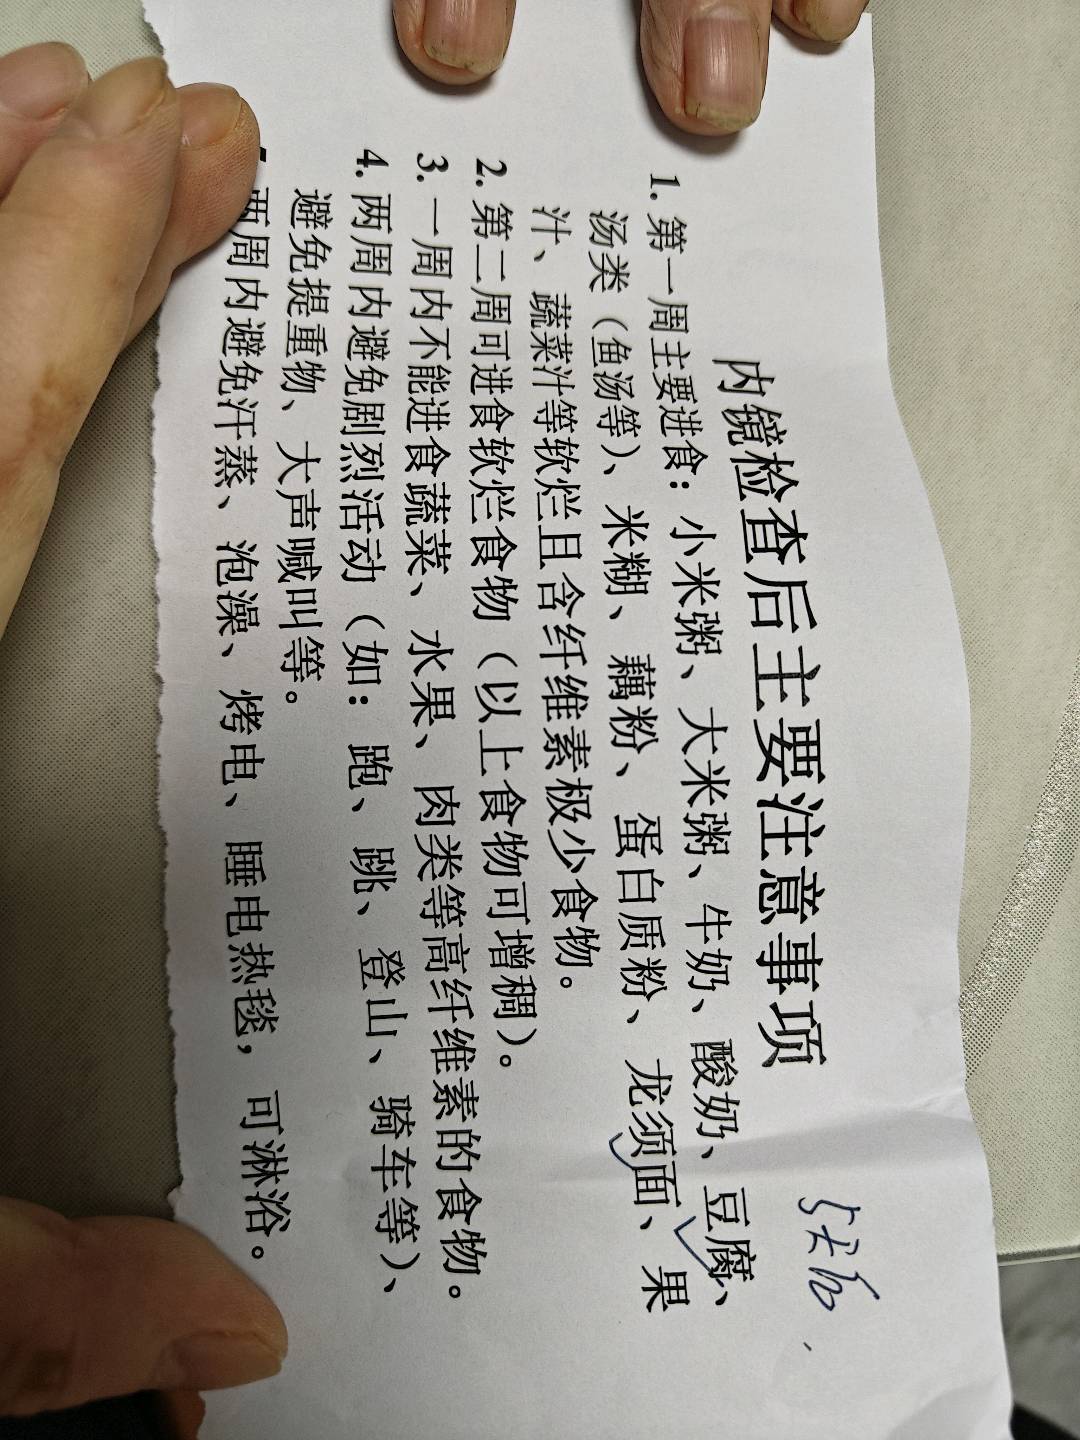 内镜检查后主要注意事项
5天后
1. 第一周主要进食：小米粥、大米粥、牛奶、酸奶、豆腐、
汤类（鱼汤等）、米糊、藕粉、蛋白质粉、龙须面、果
汁、蔬菜汁等软烂且含纤维素极少食物。
2. 第二周可进食软烂食物（以上食物可增稠）。
3. 一周内不能进食蔬菜、水果、肉类等高纤维素的食物。
4. 两周内避免剧烈活动（如：跑、跳、登山、骑车等）、
避免提重物、大声喊叫等。
两周内避免汗蒸、泡澡、烤电、睡电热毯，可淋浴。